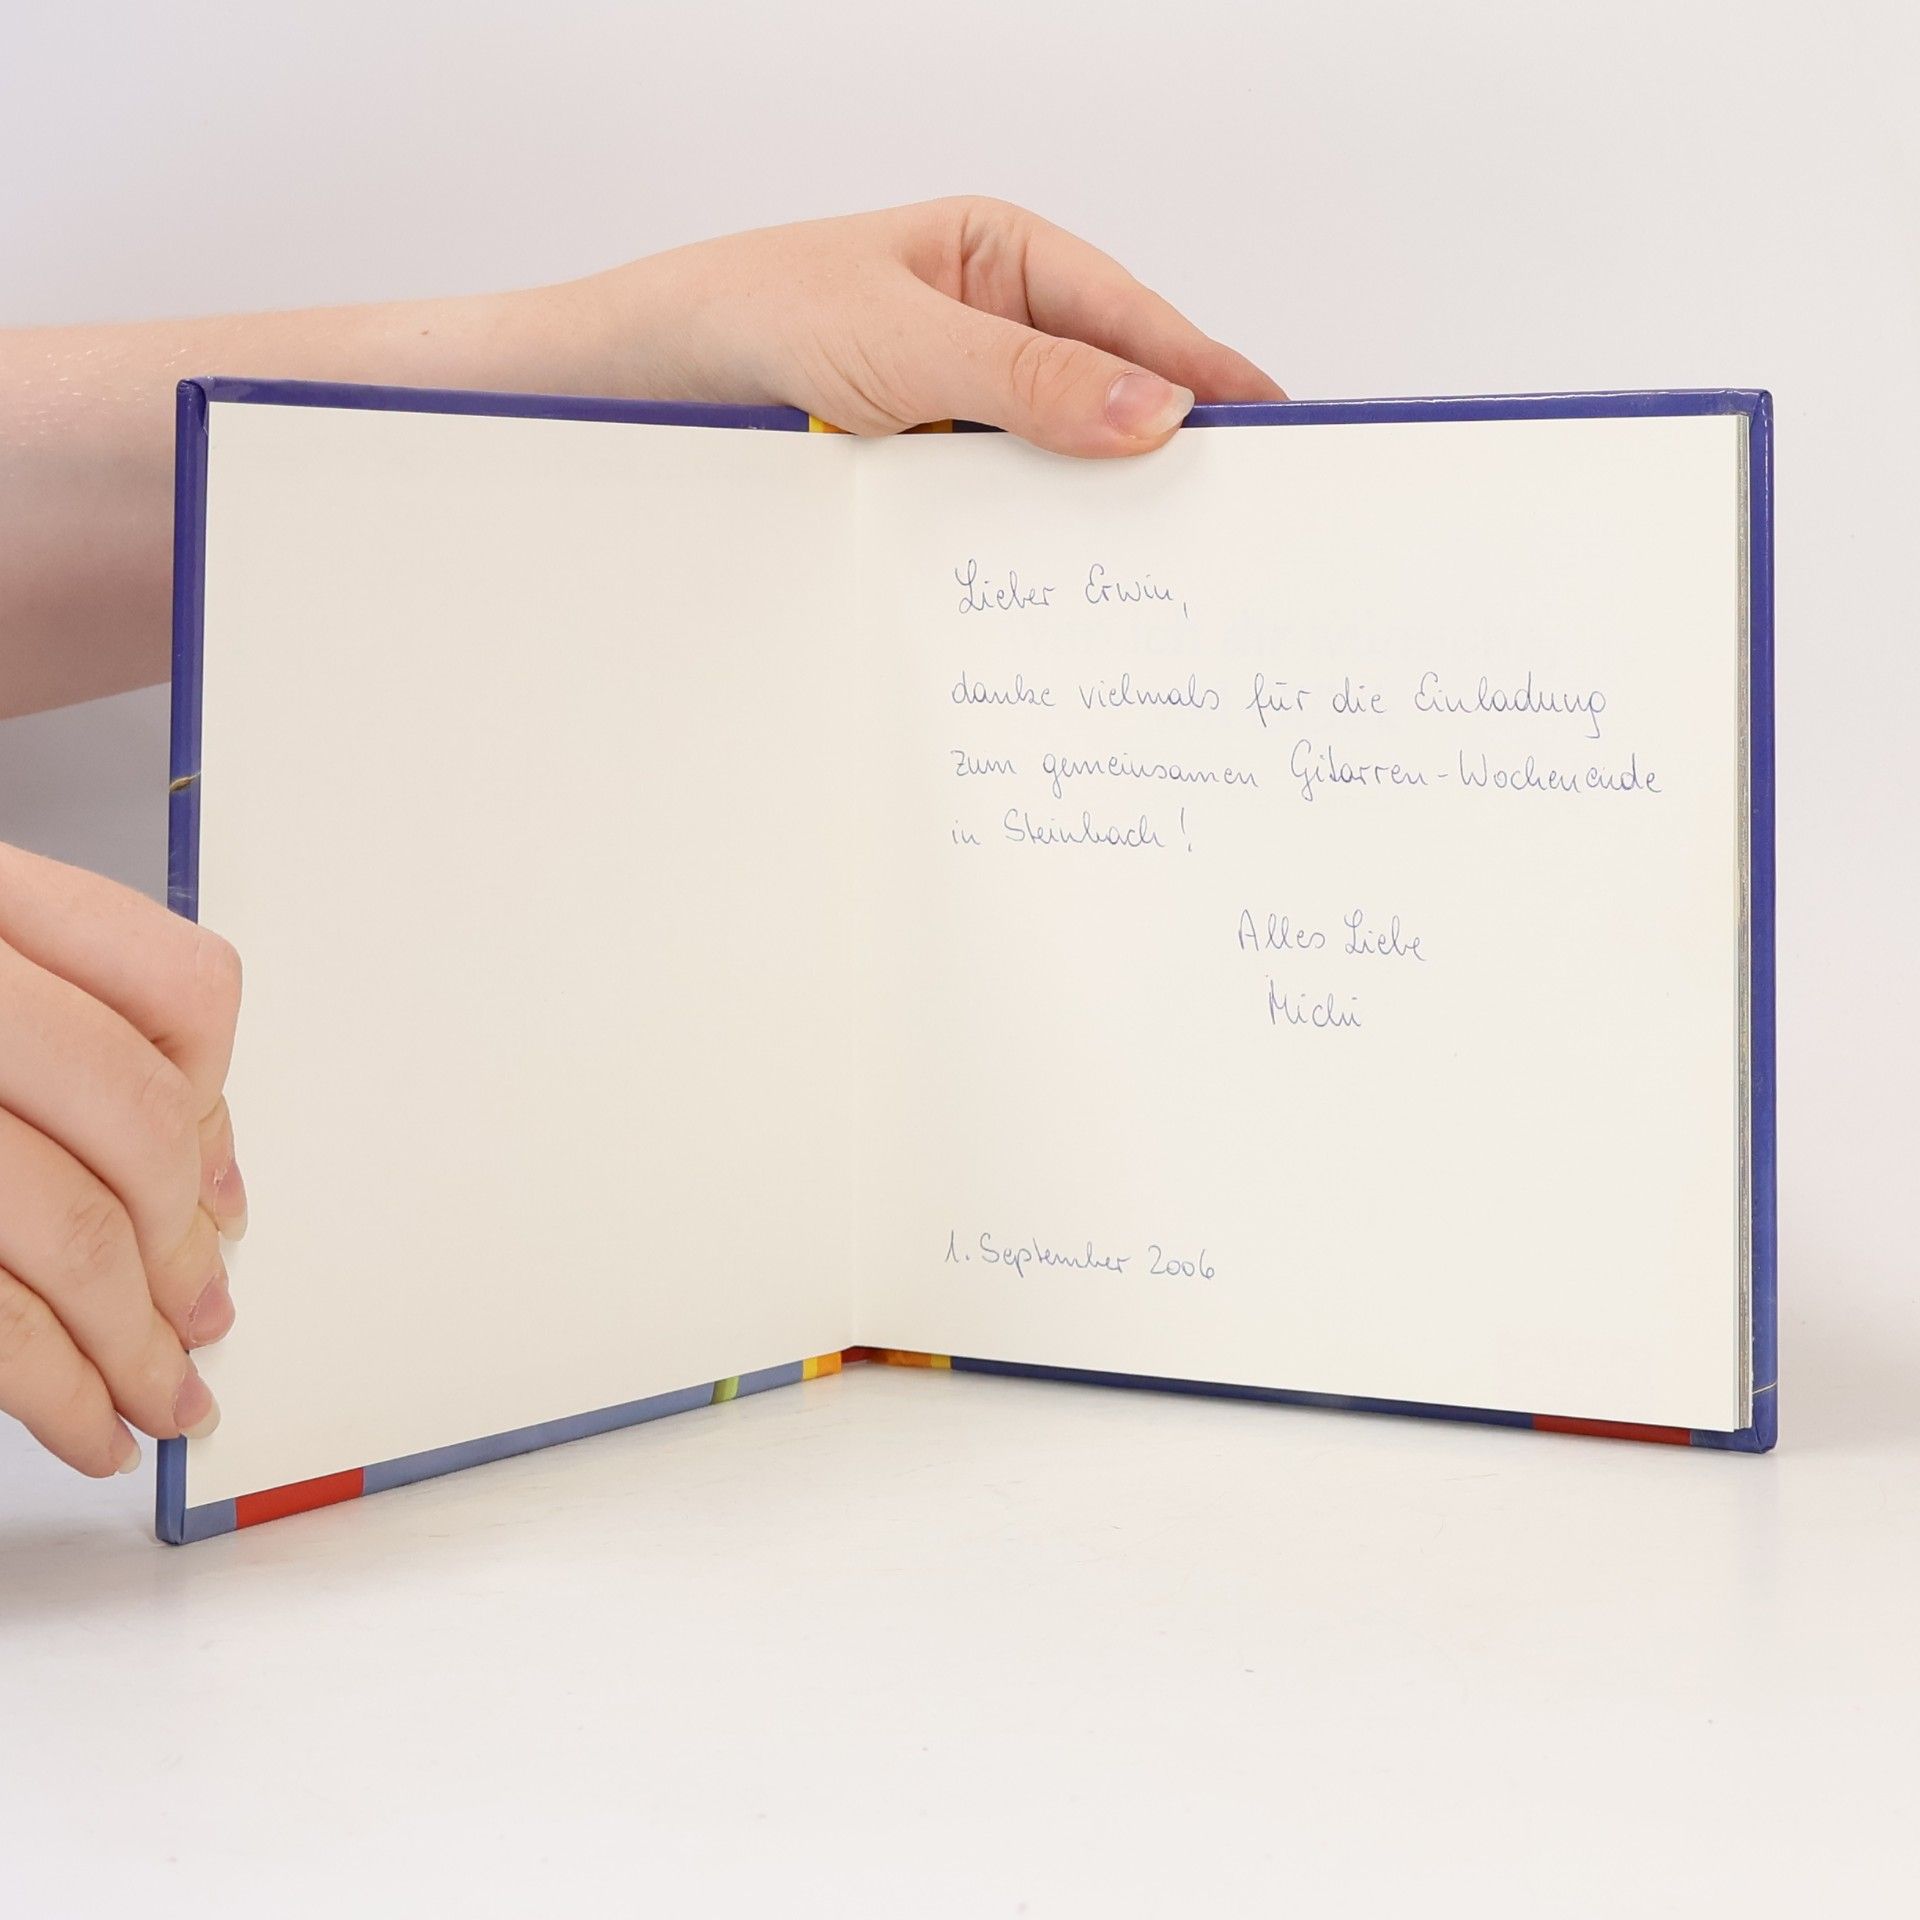 Lieber Erwin,
danke vielmals für die Einladung
zum gemeinsamen Gitarren-Wochenende
in Steinbach!
Alles Liebe
Michi
1. September 2006